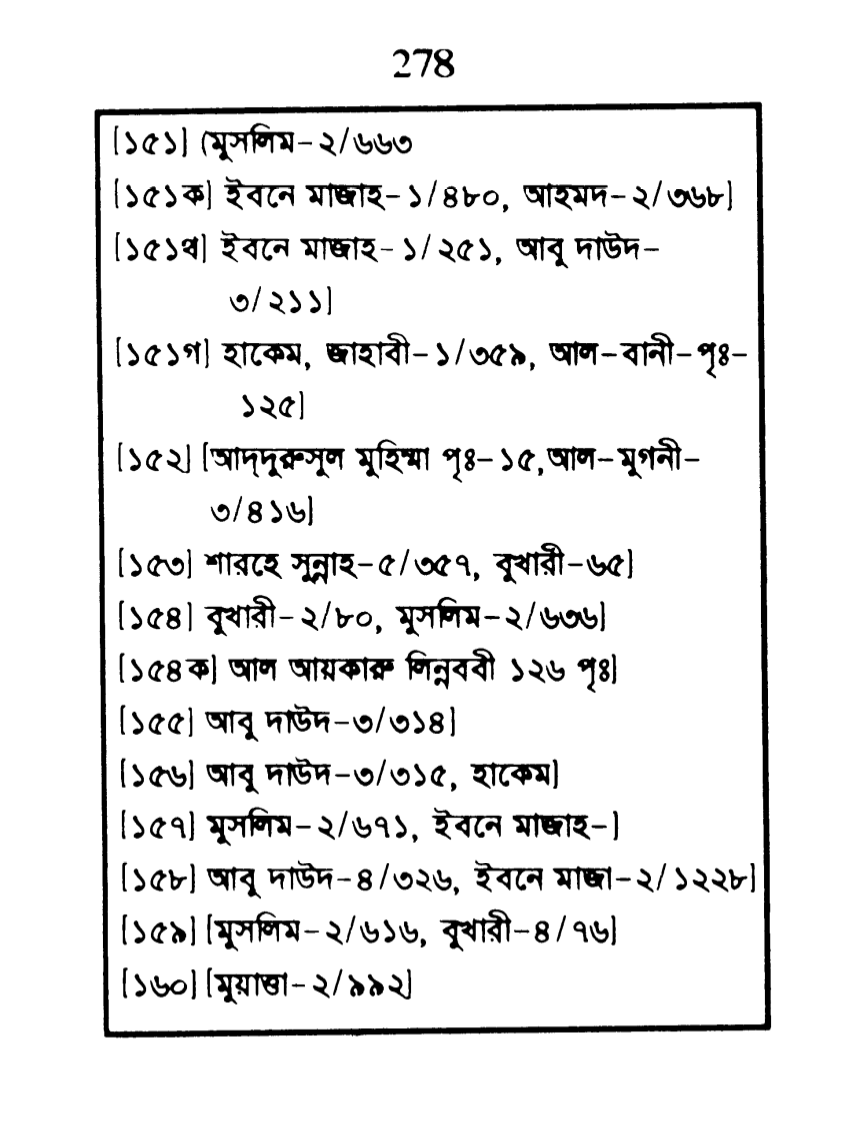 278
[১৫১] (মুসলিম-২/৬৬৩
[১৫১ক] ইবনে মাজাহ-১/৪৮০, আহমদ-২/৩৬৮]
[১৫১খ] ইবনে মাজাহ-১/২৫১, আবু দাউদ-
৩/২১১]
[১৫১গ] হাকেম, জাহাবী-১/৩৫৯, আল-বানী-পৃঃ-
১২৫]
[১৫২] [আদ্দুরুসুল মুহিম্মা পৃঃ-১৫,আল-মুগনী-
৩/৪১৬]
[১৫৩] শারহে সুন্নাহ-৫/৩৫৭, বুখারী-৬৫]
[১৫৪] বুখারী-২/৮০, মুসলিম-২/৬৩৬]
[১৫৪ক] আল আযকারু লিন্নববী ১২৬ পৃঃ]
[১৫৫] আবু দাউদ-৩/৩১৪]
[১৫৬] আবু দাউদ-৩/৩১৫, হাকেম]
[১৫৭] মুসলিম-২/৬৭১, ইবনে মাজাহ-]
[১৫৮] আবু দাউদ-৪/৩২৬, ইবনে মাজা-২/১২২৮]
[১৫৯] [মুসলিম-২/৬১৬, বুখারী-৪/৭৬]
[১৬০] [মুয়াত্তা-২/৯৯২]